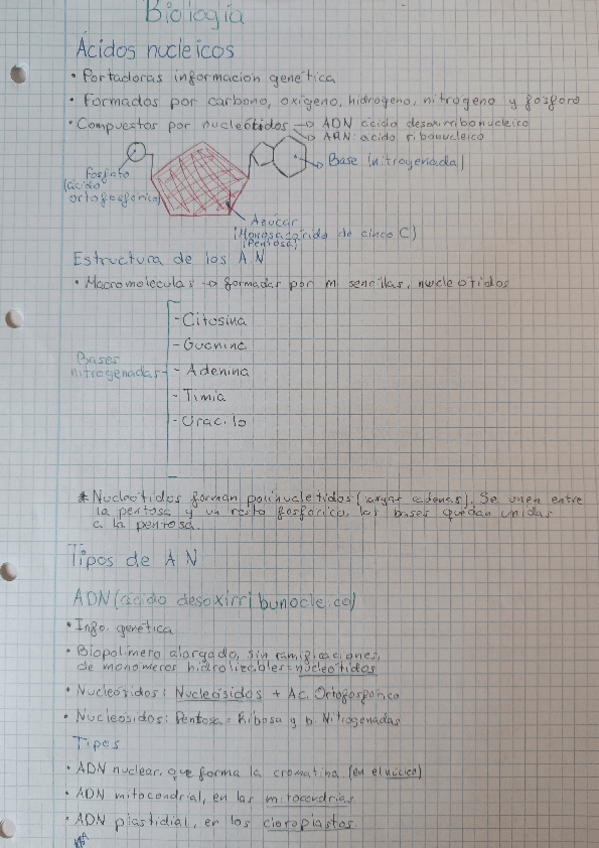 Biología
Ácidos nucleicos
• Portadoras información genética
• Formados por carbono, oxígeno, hidrogeno, nitrógeno y fosforo
• Compuestos por nucleótidos → ADN ácido desoxirribonucleico
→ ARN: acido ribonucleico
Fosfato
(ácido
ortofosfórico)
Base (nitrogenada)
Azúcar
(Monosacárido de cinco C)
(Pentosa)
Estructura de los A N
• Macromoleculas → formadas por m. sencillas, nucleotidos
Bases
nitrogenadas
- Citosina
- Guanina
- Adenina
- Timia
- Uracilo
* Nucleótidos forman polinucletidos (largas cadenas). Se unen entre
la pentosa y un resto fosfórico, las bases quedan unidas
a la pentosa.
Tipos de A N
ADN (ácido desoxirribunocleico)
• Info. genética
• Biopolímero alargado, sin ramificaciones,
de monómeros hidrolizables = nucleótidos
• Nucleótidos: Nucleósidos + Ac. Ortofosfórico
• Nucleósidos: Pentosa = Ribosa y b. Nitrogenadas
Tipos
• ADN nuclear, que forma la cromatina (en el núcleo)
• ADN mitocondrial, en las mitocondrias
• ADN plastidial, en los cloroplastos.